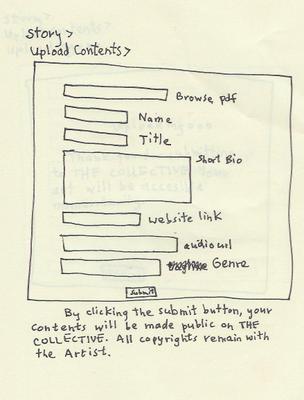 story >
Upload Contents >
Browse pdf
Name
Title
Short Bio
website link
audio url
Genre
submit
By clicking the submit button, your
contents will be made public on THE
COLLECTIVE. All copyrights remain with
the Artist.